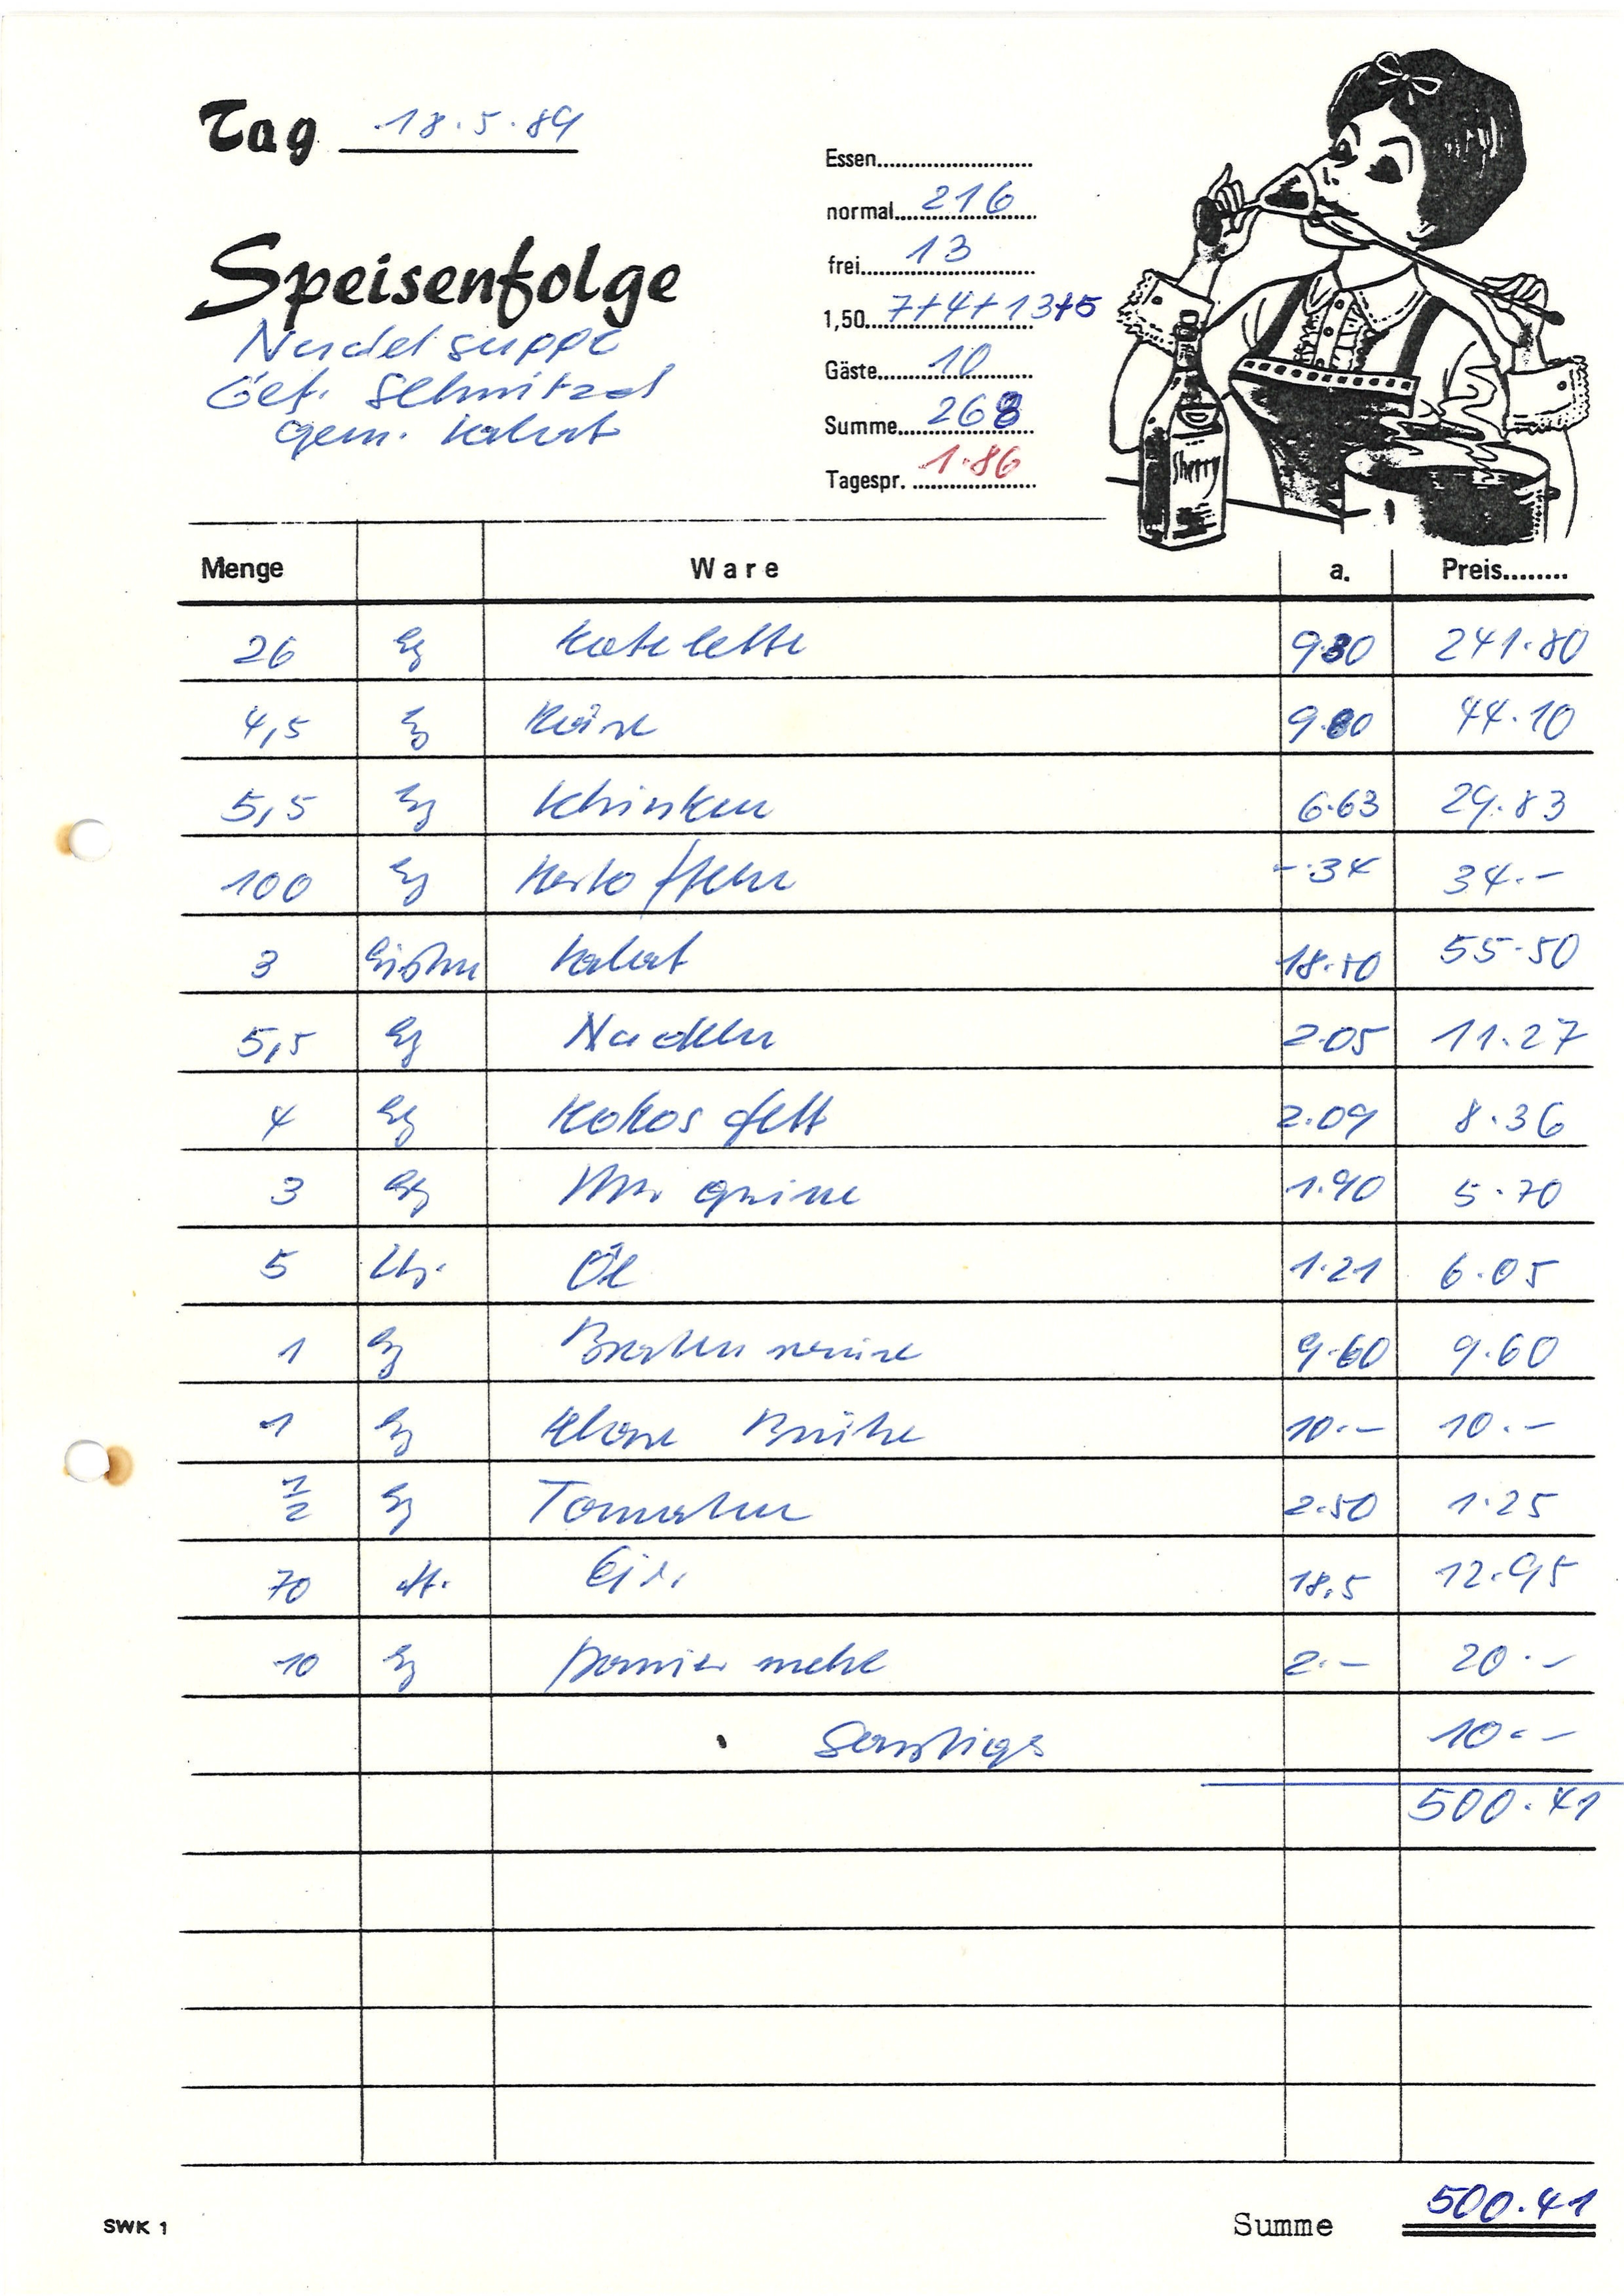 Tag 18.5.89
Essen
normal 216
frei 13
1,50 7+4+13+5
Gäste 10
Summe 268
Tagespr. 1.86
Speisenfolge
Nudelsuppe
Gef. Schnitzel
gem. Salat
Sherry
Menge Ware a. Preis
26 kg Kotelette 9.30 241.80
4,5 kg Käse 9.80 44.10
5,5 kg Schinken 6.63 29.83
100 kg Kartoffeln -.34 34.-
3 Kisten Salat 18.50 55.50
5,5 kg Nudeln 2.05 11.27
4 kg Kokosfett 2.09 8.36
3 kg Margarine 1.90 5.70
5 Ltr. Öl 1.21 6.05
1 kg Braten 9.60 9.60
1 kg Klare Brühe 10.- 10.-
1/2 kg Tomaten 2.50 1.25
70 st. Eier 18,5 12.95
10 kg Paniermehl 2.- 20.-
Sonstiges 10.-
500.41
SWK 1
Summe 500.41